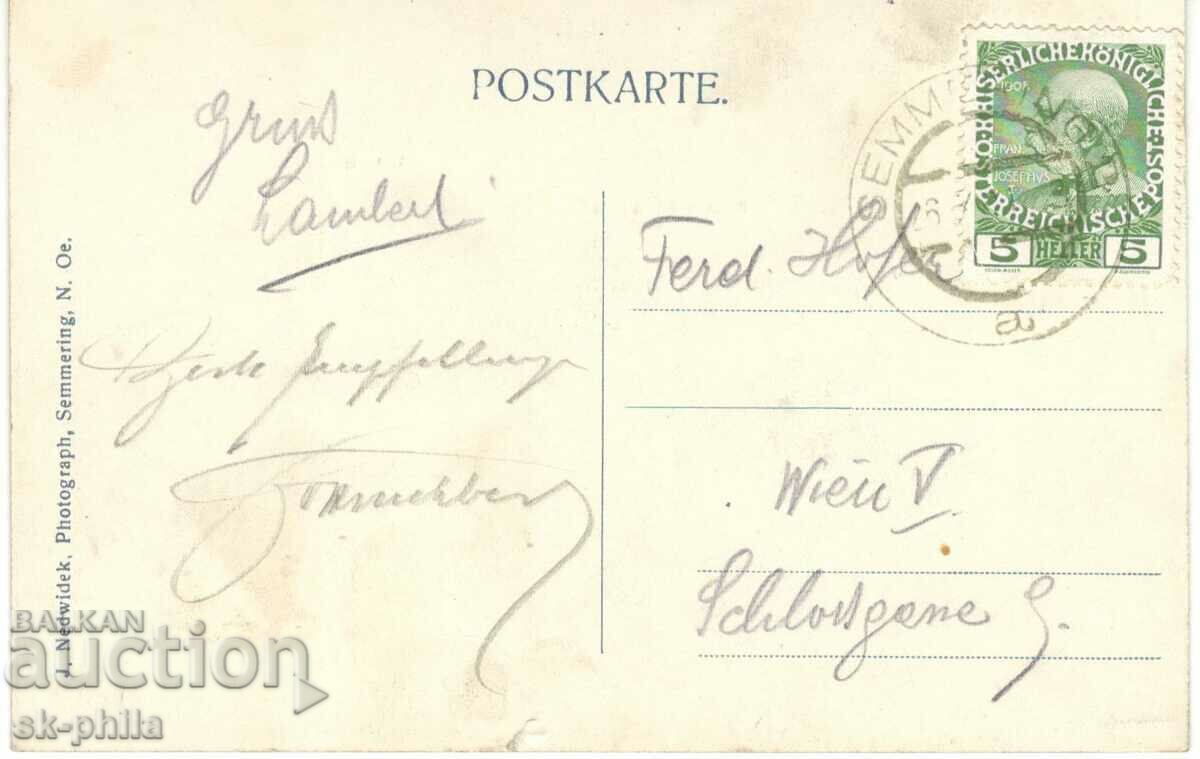 POSTKARTE.
Gruß
Lambert
Ferd. Hofer
Wien V.
Schlossgasse 9.
J. Nedwidek, Photograph, Semmering, N. Oe.
KAISERLICHE KÖNIGLICHE
ÖSTERREICHISCHE POST
FRAN.
JOSEPHVS
5 HELLER 5
SEMM
a
BALKAN
auction
sk-phila